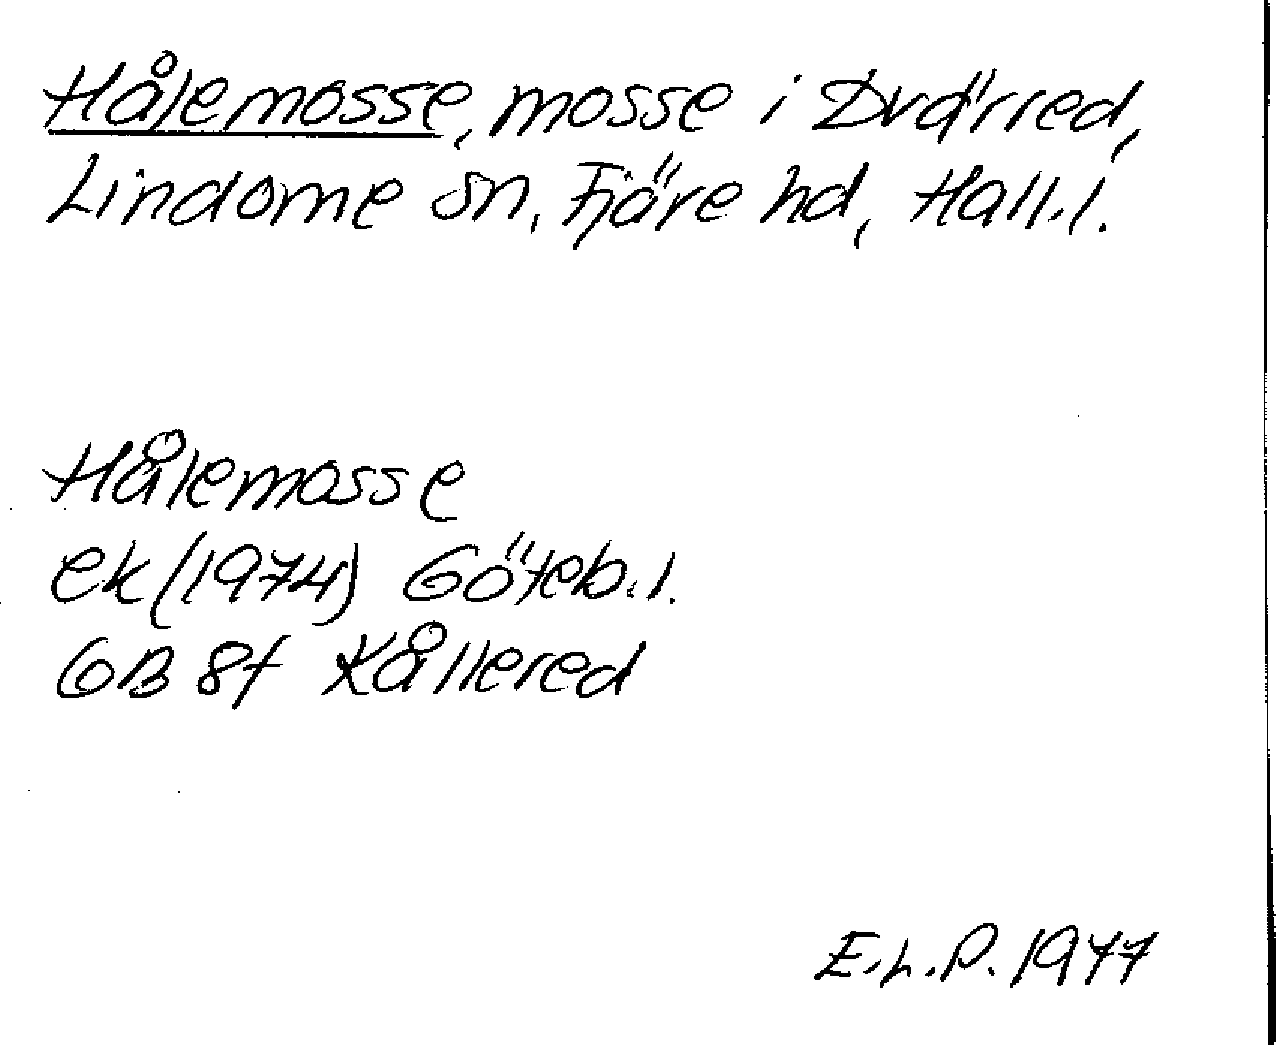 Hålemosse, mosse i Dvärred,
Lindome sn, Fjäre hd, Hall.l.
Hålemosse
ek (1974) Göteb.l.
6B 8f Kållered
E.L.P. 1977